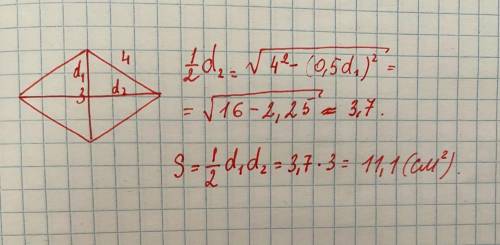 d₁ 4
3 d₂
½d₂ = √(4² - (0,5d₁)²) =
= √(16 - 2,25) ≈ 3,7.
S = ½d₁d₂ = 3,7 · 3 = 11,1 (см²).